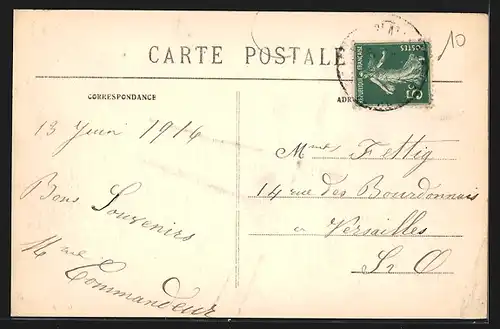 10
CARTE POSTALE
POSTES
REPUBLIQUE FRANÇAISE
5c
CORRESPONDANCE
ADR
13 Juin 1916
Bons Souvenirs
Mme Commandeur
Mme Fettig
14 rue des Bourdonnais
a Versailles
S O